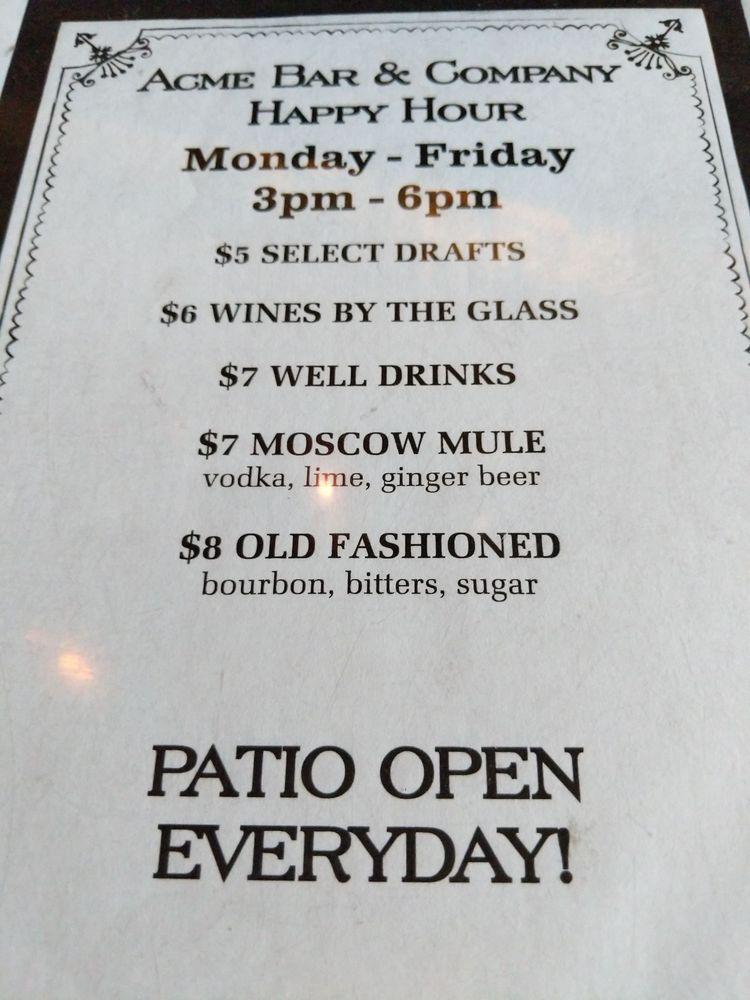 ACME BAR & COMPANY
HAPPY HOUR
Monday - Friday
3pm - 6pm
$5 SELECT DRAFTS
$6 WINES BY THE GLASS
$7 WELL DRINKS
$7 MOSCOW MULE
vodka, lime, ginger beer
$8 OLD FASHIONED
bourbon, bitters, sugar
PATIO OPEN
EVERYDAY!